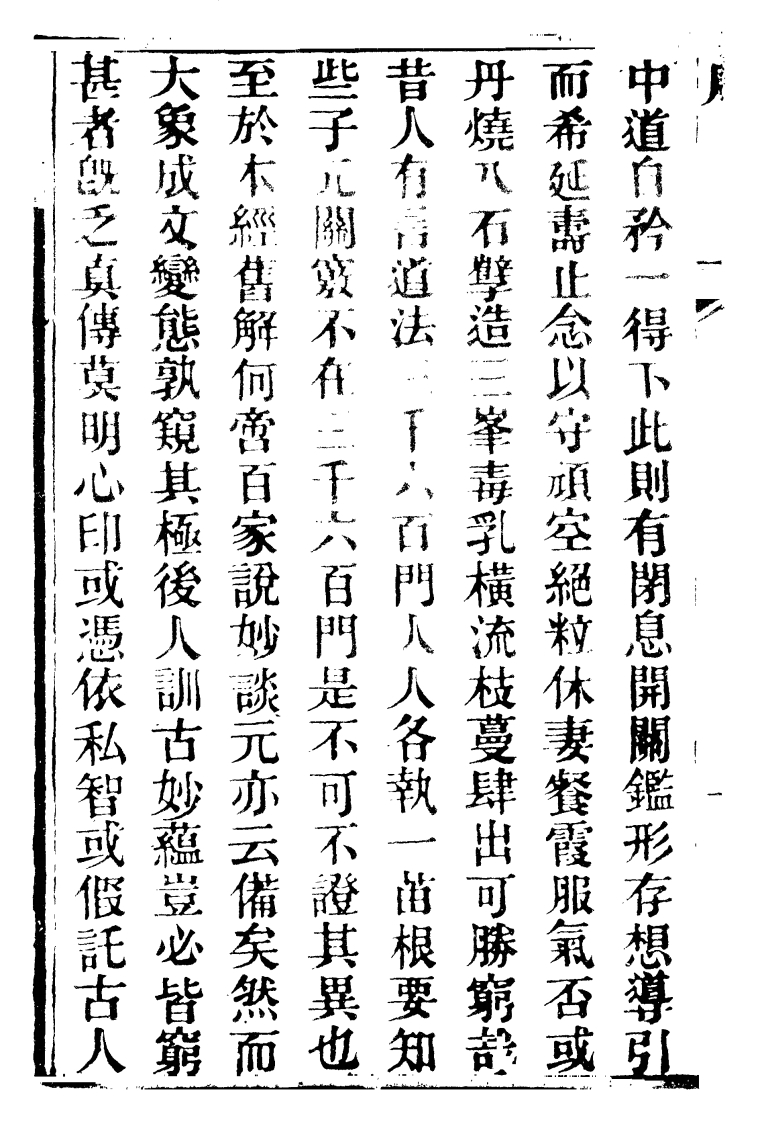 中道自矜一得下此則有閉息開關鑑形存想導引
而希延壽止念以守頑空絕粒休妻餐霞服氣否或
丹燒八石孽造三峯毒乳橫流枝蔓肆出可勝窮詰
昔人有言道法三千六百門人人各執一苗根要知
些子元關竅不在三千六百門是不可不證其異也
至於本經舊解何啻百家說妙談元亦云備矣然而
大象成文變態孰窺其極後人訓古妙蘊豈必皆窮
甚者旣乏真傳莫明心印或憑依私智或假託古人